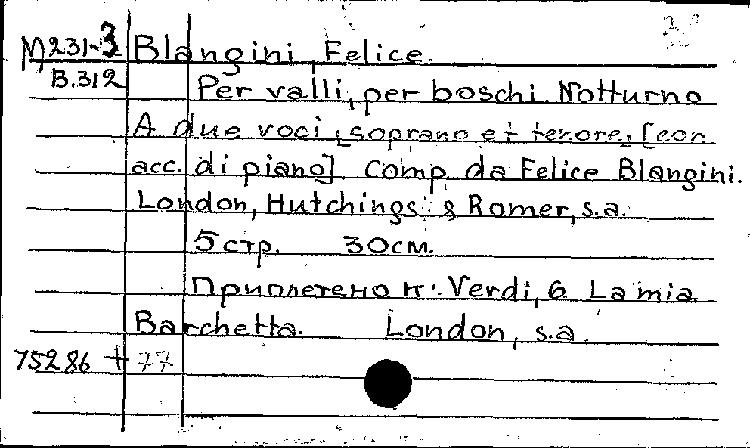 M231-3 Blangini, Felice.
B.312 Per valli, per boschi. Notturno
A due voci, [soprano et tenore, [con
acc. di piano]. Comp. da Felice Blangini.
London, Hutchings & Romer, s.a.
5 стр. 30см.
Приплетено к: Verdi, G. La mia
Barchetta. London, s.a.
75286 + 77